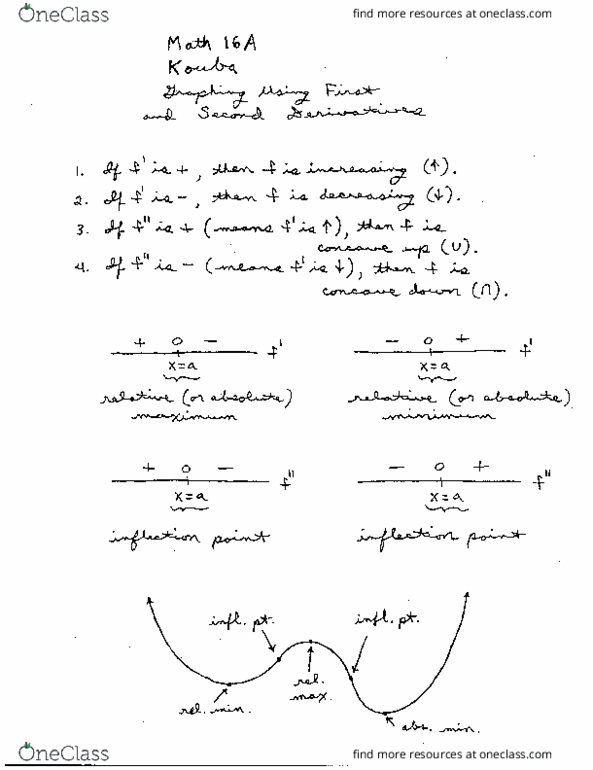 OneClass
find more resources at oneclass.com
Math 16A
Kouba
Graphing Using First
and Second Derivatives
1. If f' is +, then f is increasing (↑).
2. If f' is -, then f is decreasing (↓).
3. If f" is + (means f' is ↑), then f is
concave up (∪).
4. If f" is - (means f' is ↓), then f is
concave down (∩).
+ 0 - f'
x=a
relative (or absolute)
maximum
- 0 + f'
x=a
relative (or absolute)
minimum
+ 0 - f"
x=a
inflection point
- 0 + f"
x=a
inflection point
infl. pt.
infl. pt.
rel. min.
rel.
max.
abs. min.
OneClass
find more resources at oneclass.com